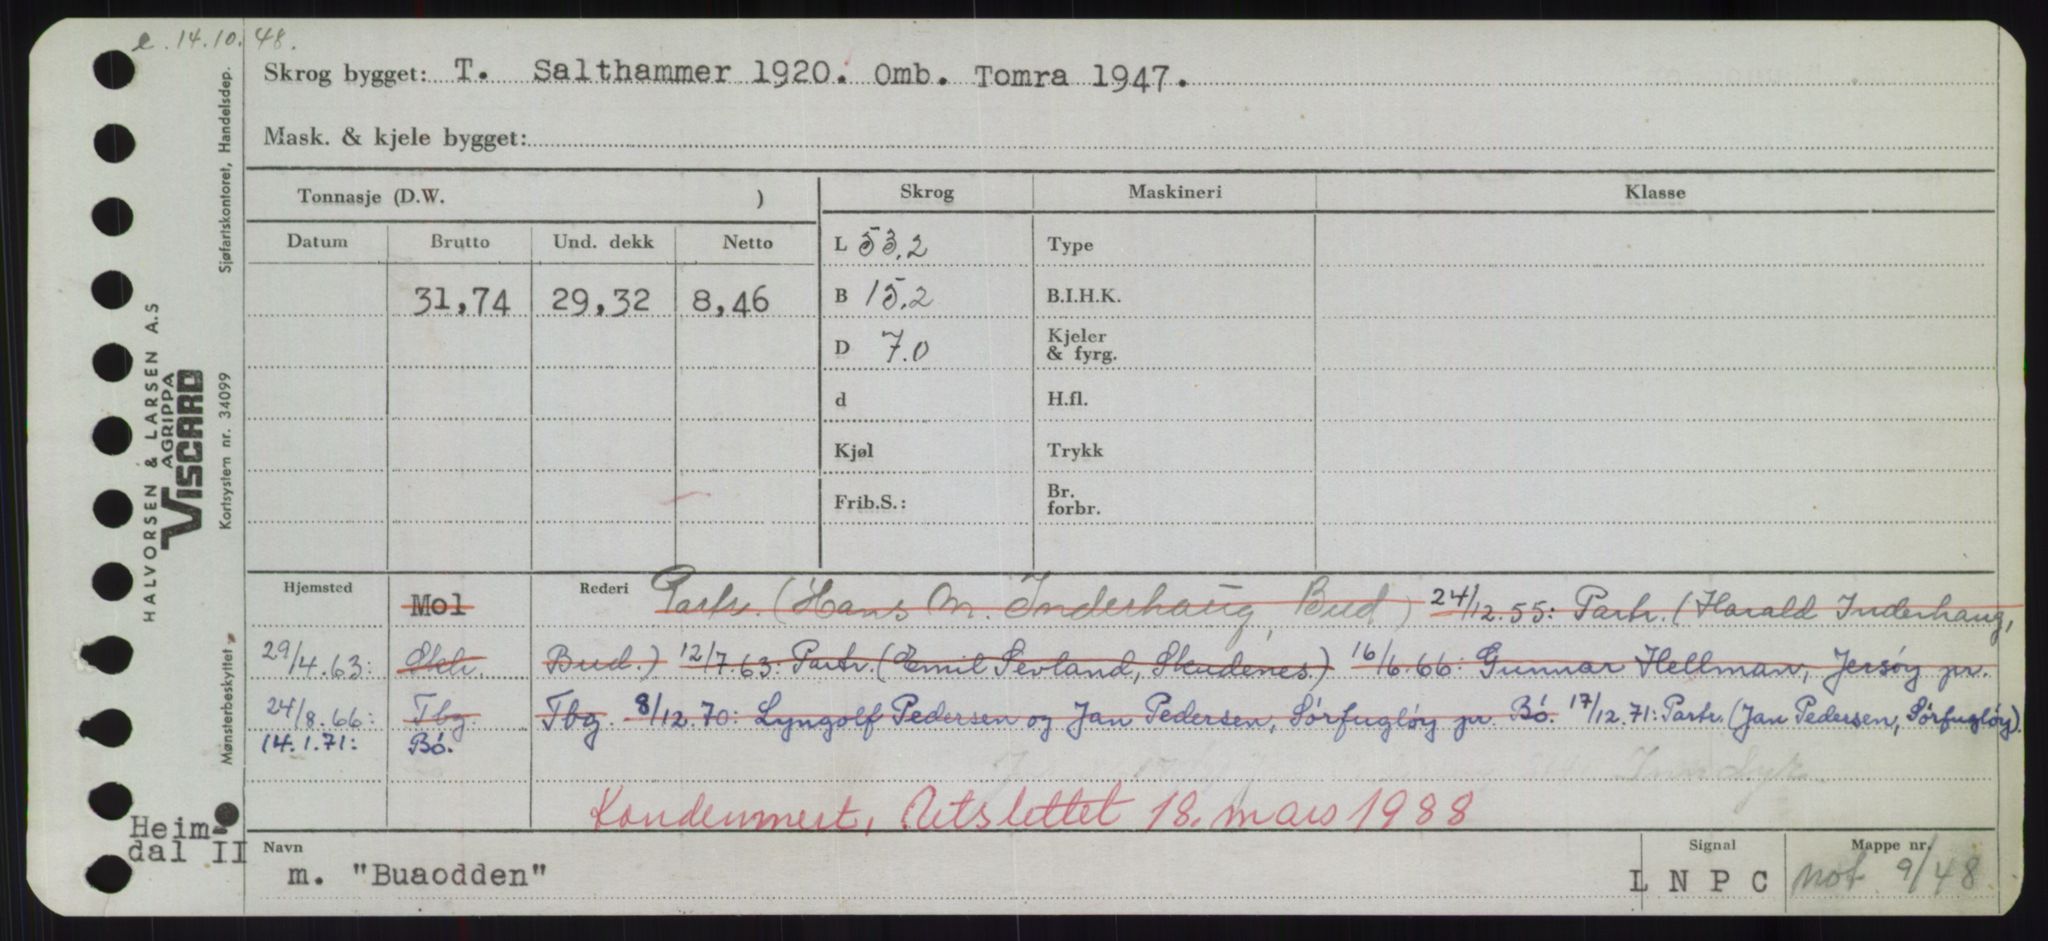 e. 14.10.48.
Skrog bygget: T. Salthammer 1920. Omb. Tomra 1947.
Mask. & kjele bygget:
Tonnasje (D.W. )
Skrog
Maskineri
Klasse
Datum
Brutto
Und. dekk
Netto
31,74
29,32
8,46
L 53,2
B 15.2
D 7.0
d
Kjøl
Frib.S.:
Type
B.I.H.K.
Kjeler
& fyrg.
H.fl.
Trykk
Br.
forbr.
Hjemsted
Mol
Rederi
Partr. (Hans M. Inderhaug, Bud) 24/12.55: Partr. (Harald Inderhaug,
29/4.63: Skr. Bud.) 12/7.63: Partr. (Emil Sevland, Skudenes.) 16/6.66: Gunnar Hellman, Jersøy pr.
24/8.66: Tbg. Tbg. 8/12.70: Lyngolf Pedersen og Jan Pedersen, Sørfugløy pr. Bó. 17/12.71: Partr. (Jan Pedersen, Sørfugløy).
14.1.71: Bó.
Kondemnert, Utslettet 18. mars 1988
Navn
m. "Buaodden"
Signal
L N P C
Mappe nr.
not 9/48
Heim-
dal II
HALVORSEN & LARSEN A.S
AGRIPPA
VISCARD
Sjøfartskontoret, Handelsdep.
Kortsystem nr. 34099
Mønsterbeskyttet